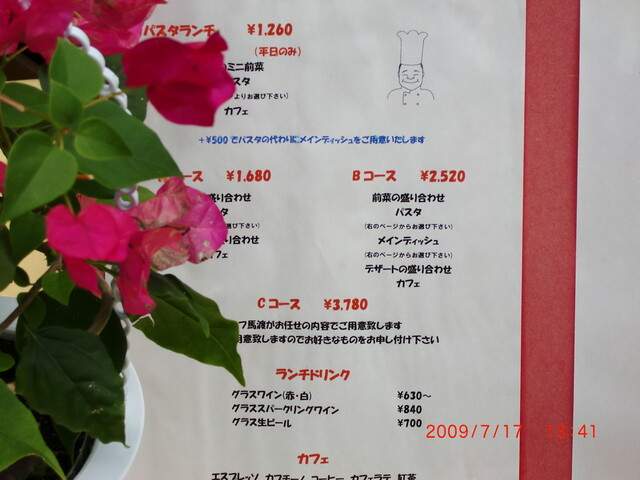 パスタランチ ¥1.260
(平日のみ)
ミニ前菜
スタ
よりお選び下さい)
カフェ
+¥500でパスタの代わりにメインディッシュをご用意いたします
コース ¥1.680
盛り合わせ
り合わせ
フェ
Bコース ¥2.520
前菜の盛り合わせ
パスタ
(右のページからお選び下さい)
メインディッシュ
(右のページからお選び下さい)
デザートの盛り合わせ
カフェ
Cコース ¥3.780
フ馬渡がお任せの内容でご用意致します
用意致しますのでお好きなものをお申し付け下さい
ランチドリンク
グラスワイン(赤・白) ¥630〜
グラススパークリングワイン ¥840
グラス生ビール ¥700
カフェ
エスプレッソ カプチーノ コーヒー カフェラテ 紅茶
2009/7/17 13:41